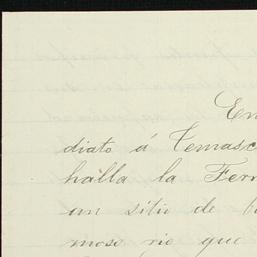 En
diato á Temasc
halla la Ferr
un sitio de
moso rio que